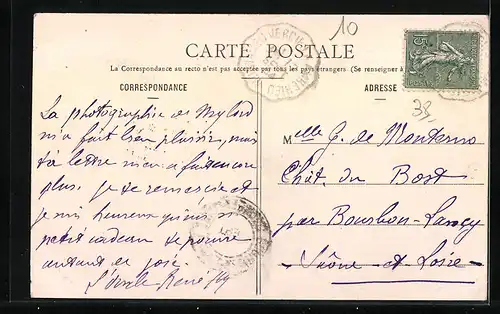 10
CARTE POSTALE
La Correspondance au recto n'est pas acceptée par tous les pays étrangers. (Se renseigner à
CORRESPONDANCE
ADRESSE
La photographie de Mylord
m'a fait bien plaisir, mais
ta lettre m'en a fait encore
plus. Je te remercie et
je suis heureux qu'un
petit cadeau te
autant de joie.
L'oncle René
15
Melle G. de Monterno
Chât. du Bost
par Bourbon-Lancy
Saône et Loire